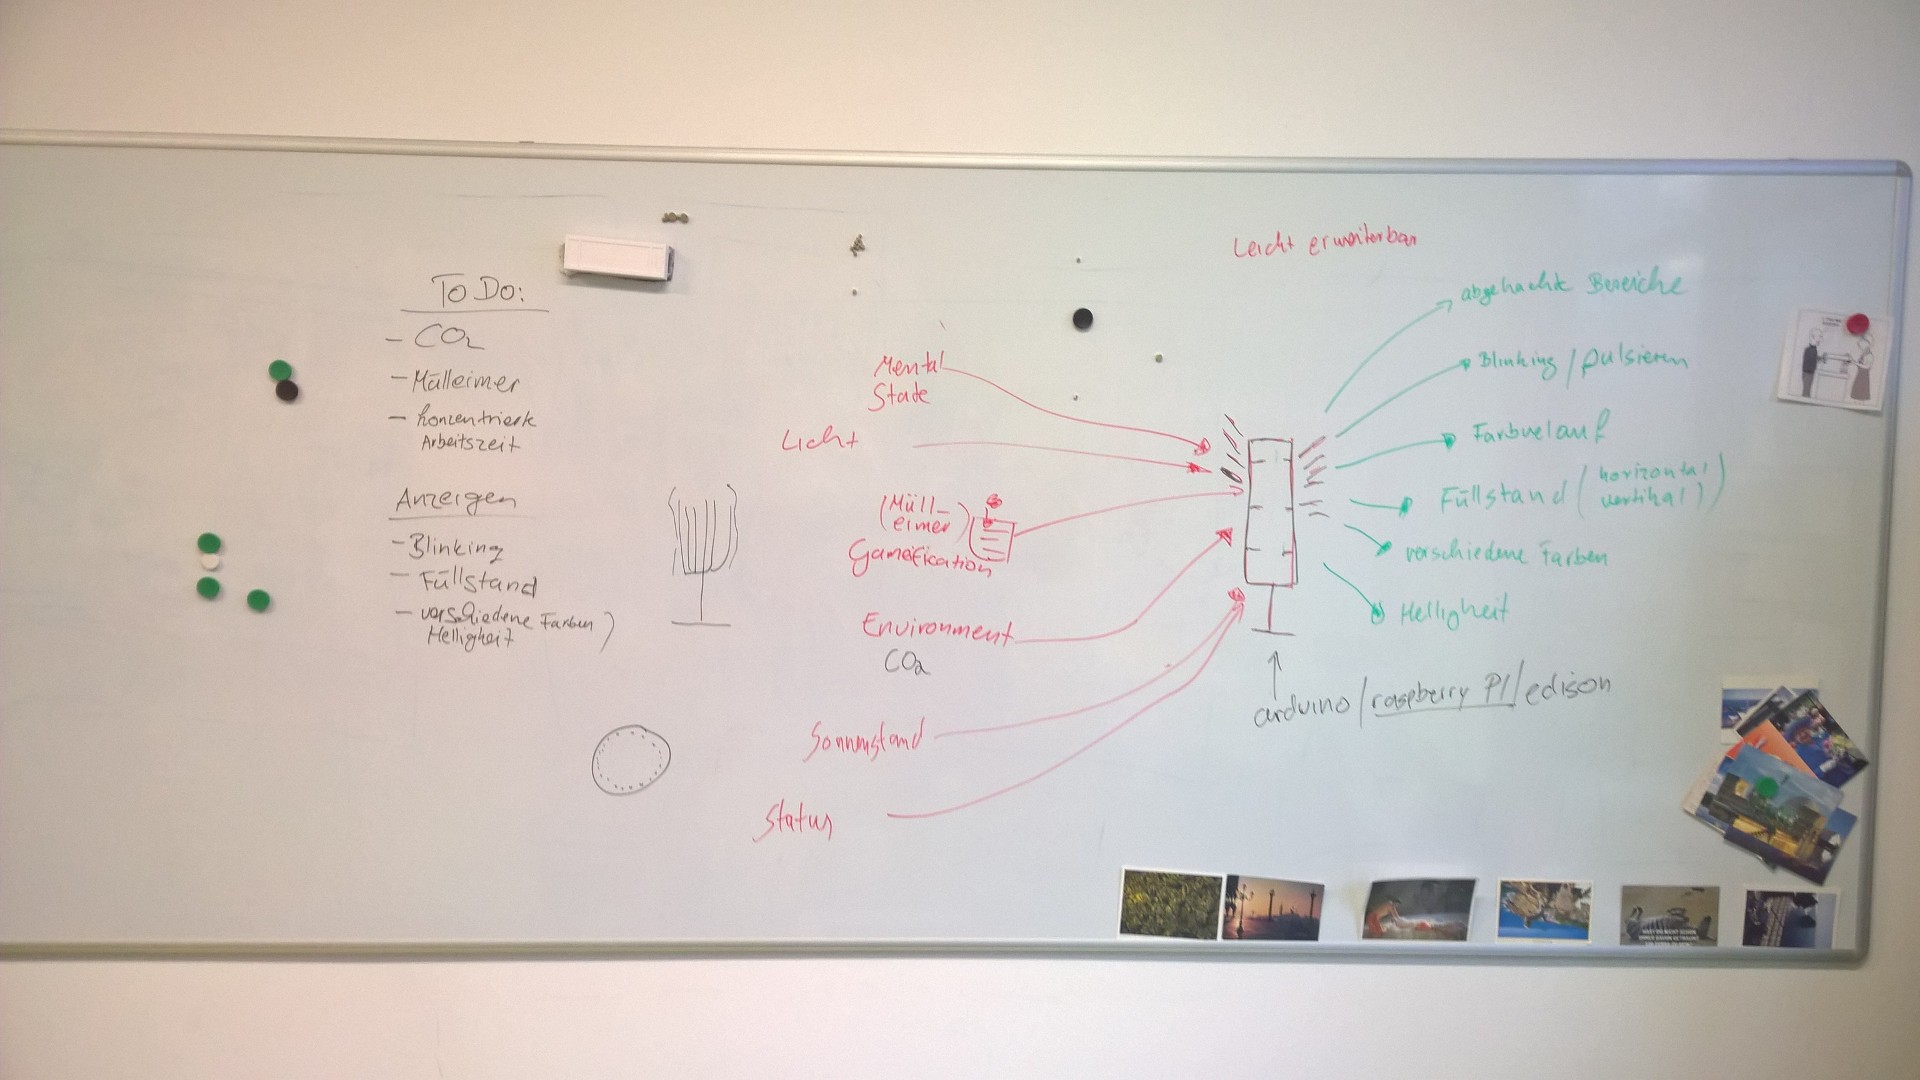 To Do:
- CO2
- Mülleimer
- konzentrierte
Arbeitszeit
Anzeigen
- Blinking
- Füllstand
- verschiedene Farben )
Helligkeit
Mental
State
Licht
(Müll-
eimer)
Gameification
Environment
CO2
Sonnenstand
Status
Leicht erweiterbar
abgehackte Bereiche
Blinking / pulsieren
Farbverlauf
Füllstand ( horizontal
vertikal )
verschiedene Farben
Helligkeit
arduino / raspberry PI / edison